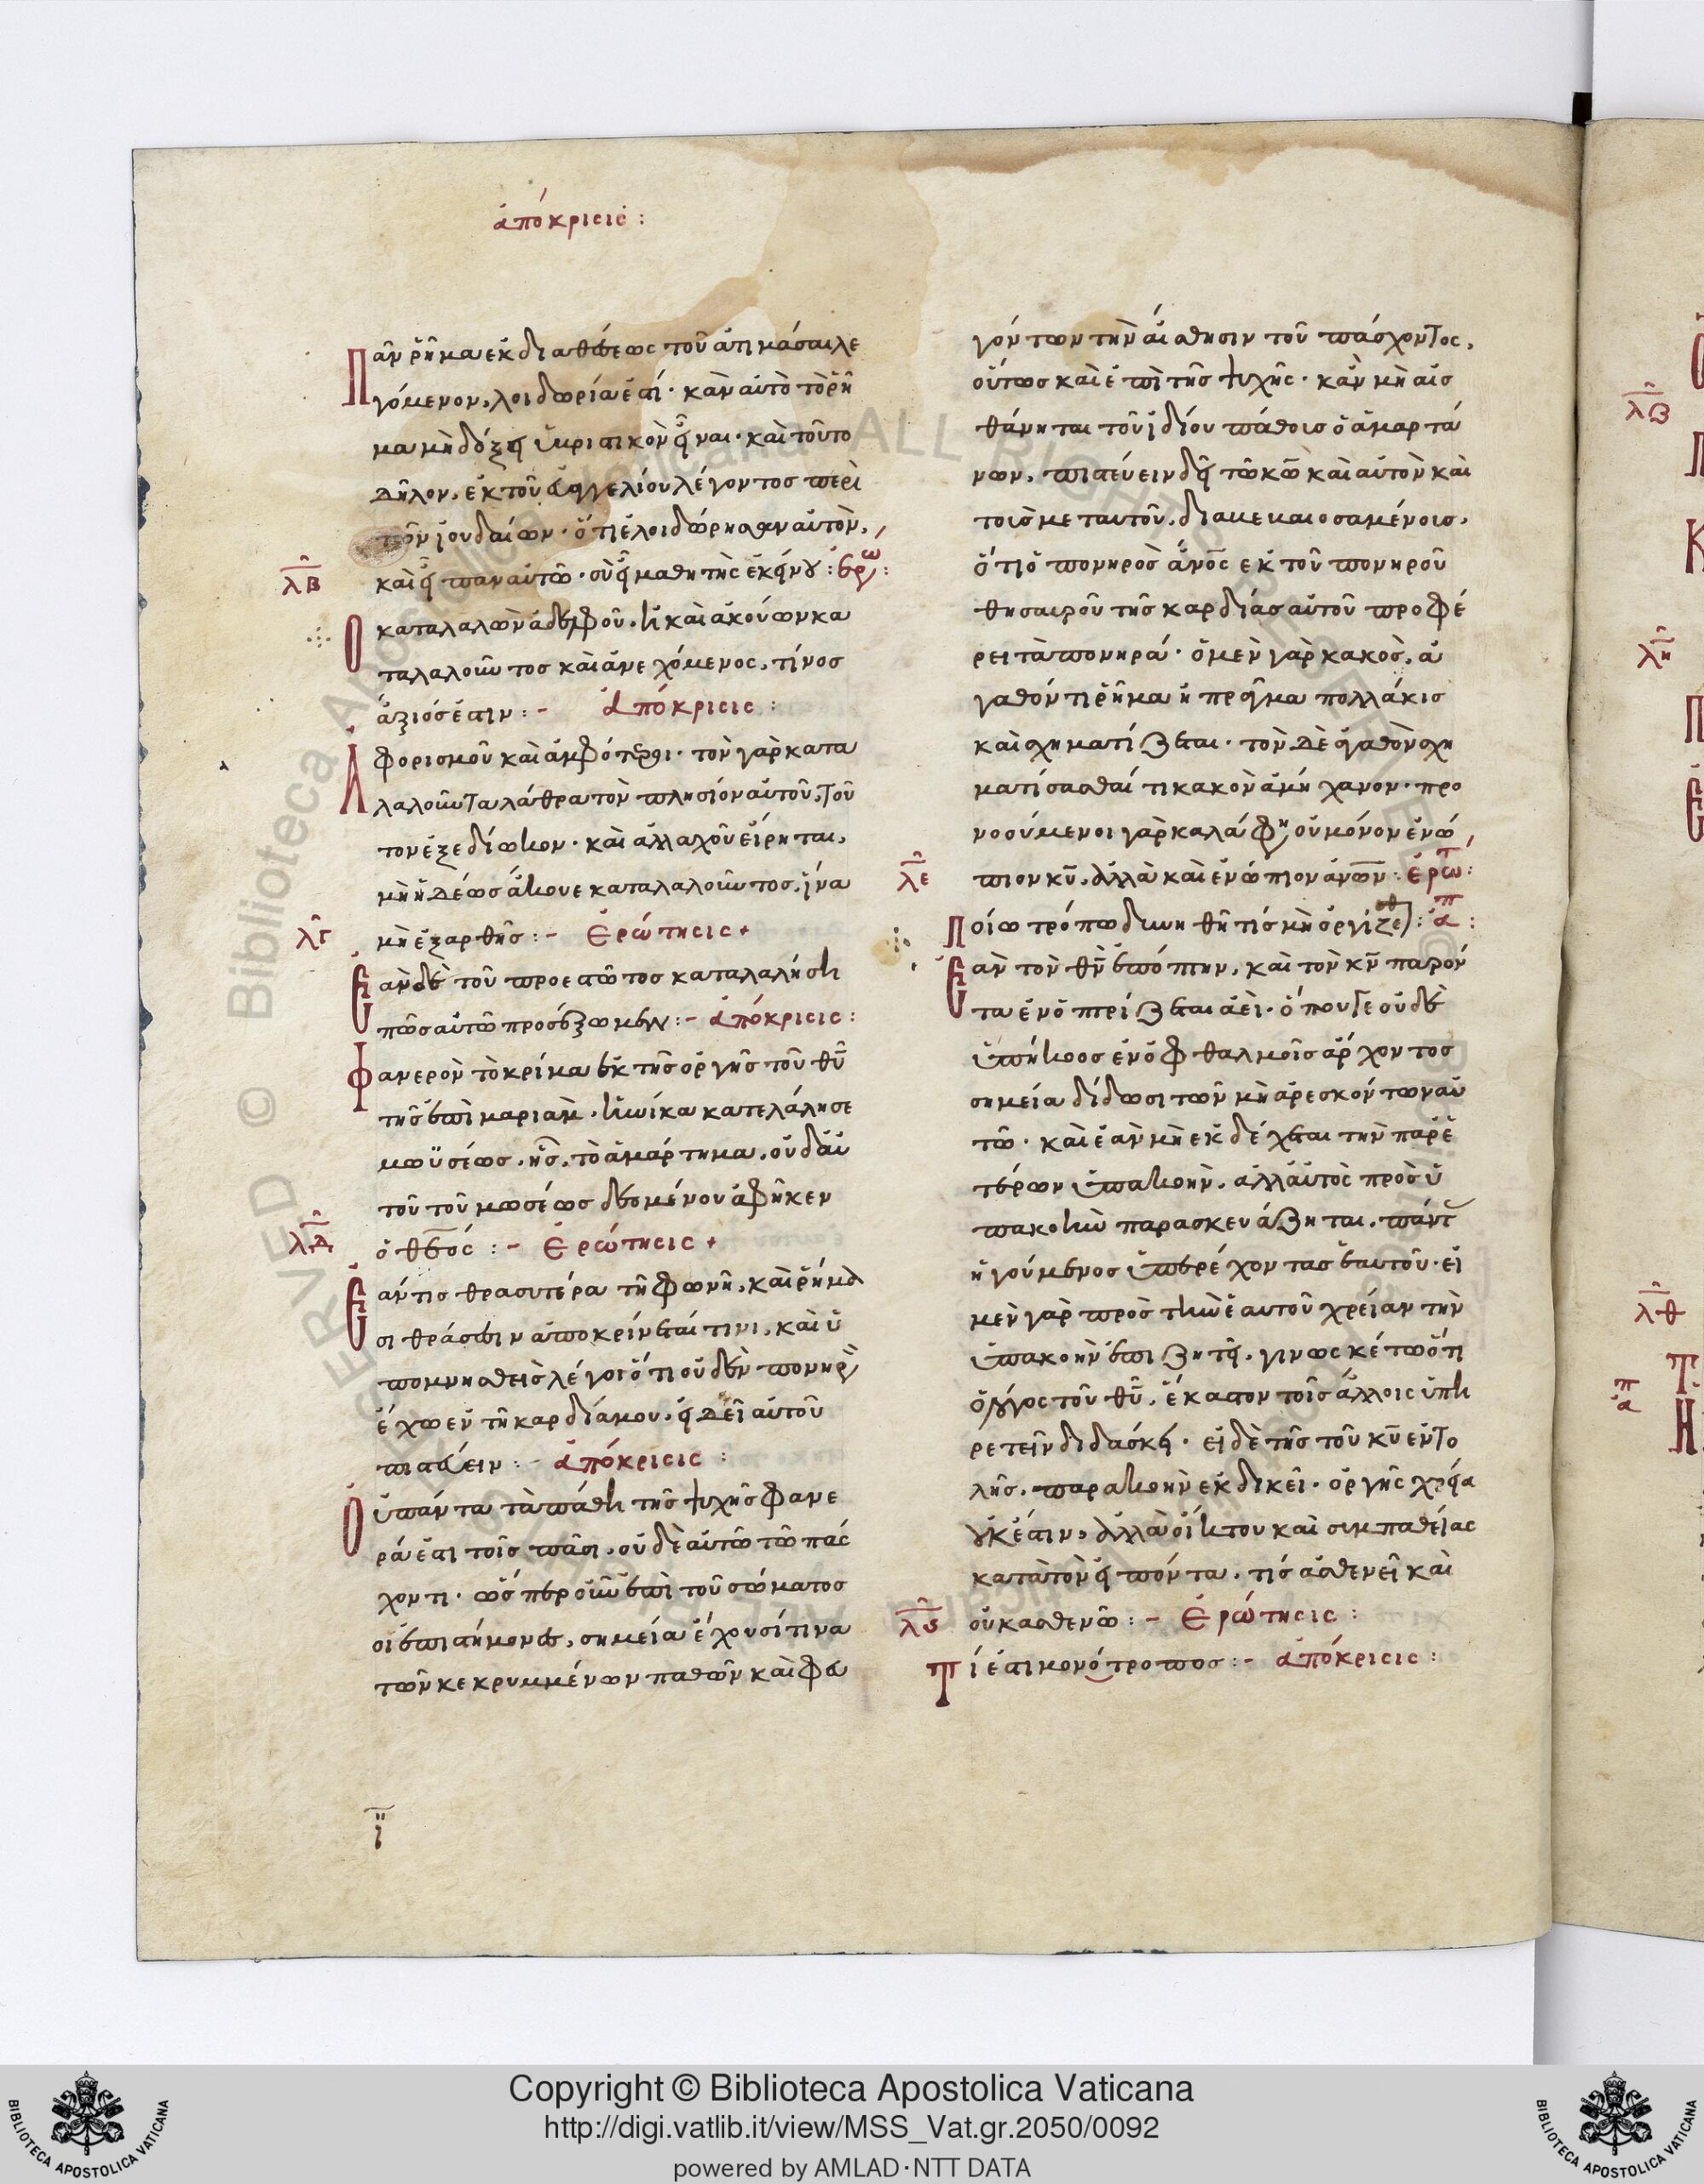 ἀπόκρισις:
Πᾶν ῥῆμα ἐκ διαθέσεως τοῦ ἀτιμάσαι λε
γόμενον, λοιδωρία ἐστί· κἂν αὐτὸ τὸ ῥῆ
μα μὴ δόξη ὑβριστικὸν εἶναι· καὶ τοῦτο
δῆλον, ἐκ τοῦ εὐαγγελίου λέγοντος περὶ
τῶν ἰουδαίων· ὅτι ἐλοιδώρησαν αὐτὸν,
λβ
καὶ εἶπαν αὐτῶ· σὺ εἶ μαθητὴς ἐκείνου: ἐρω:
Ὁ καταλαλῶν ἀδελφοῦ, ἢ καὶ ἀκούων κα
ταλαλοῦντος καὶ ἀνεχόμενος, τίνος
ἄξιός ἐστιν:- ἀπόκρισις:
Ἀφορισμοῦ καὶ ἀμφότεροι· τὸν γὰρ κατα
λαλοῦντα λάθρα τὸν πλησίον αὐτοῦ, τοῦ
τον ἐξεδίωκον· καὶ ἀλλαχοῦ εἴρηται,
μὴ ἡδέως ἄκουε καταλαλοῦντος, ἵνα
λγ
μὴ ἐξαρθῆς:- Ἐρώτησις+
Ἐὰν δὲ τοῦ προεστῶτος καταλαλήση
πῶς αὐτῶ προσέξωμεν:- ἀπόκρισις:
Φανερὸν τὸ κρίμα ἐκ τῆς ὀργῆς τοῦ θυ
τῆς ἐπὶ μαριὰμ, ἡνίκα κατελάλησε
μωϋσέως, ἧς, τὸ ἁμάρτημα, οὐδ' αὐ
τοῦ τοῦ μωσέως δεομένου ἀφῆκεν
λδ
ὁ θεός:- Ἐρώτησις+
Ἐάν τις θρασυτέρα τῆ φωνῆ, καὶ ῥήμα
σι θράσεσιν ἀποκρίνεταί τινι, καὶ ὑ
πομνησθεὶς λέγοι ὅτι οὐδὲν πονηρὸν
ἔχω ἐν τῆ καρδία μου, εἰ δεῖ αὐτοῦ
πιστεύειν:- ἀπόκρισις:
Οὐ πάντα τὰ πάθη τῆς ψυχῆς φανε
ρά ἐστι τοῖς πᾶσι, οὐδὲ αὐτῶ τῶ πάσ
χοντι· ὥσπερ οὖν ἐπὶ τοῦ σώματος
οἱ ἐπιστήμονες, σημεία ἔχουσί τινα
τῶν κεκρυμμένων παθῶν καὶ φευ
ϊ
γόντων τὴν αἴσθησιν τοῦ πάσχοντος,
οὕτως καὶ ἐπὶ τῆς ψυχῆς· κἂν μὴ αἰσ
θάνηται τοῦ ἰδίου πάθους ὁ ἁμαρτά
νων, πιστεύειν δεῖ τῶ κω καὶ αὐτὸν καὶ
τοὺς μετ' αὐτοῦ,
ὅτι ὁ πονηρὸς ανος ἐκ τοῦ πονηροῦ
θησαυροῦ τῆς καρδίας αὐτοῦ προφέ
ρει τὰ πονηρά· ὁ μὲν γὰρ κακὸς, ἀ
γαθόν τι ῥῆμα ἢ πρᾶγμα πολλάκις
καὶ σχηματίζεται· τὸν δὲ ἀγαθὸν σχη
ματίσασθαί τι κακὸν ἀμήχανον· προ
νοούμενοι γὰρ καλά φη, οὐ μόνον ἐνώ
λε
πιον κυ, ἀλλὰ καὶ ἐνώπιον ανων: ἐρωτ:
Ποίω τρόπω δυνηθῆ τίς μὴ ὀργίζεσθαι: απ:
Ἐὰν τὸν θν ἐπόπτην, καὶ τὸν κν παρόν
τα ἐνοπτρίζεται ἀεὶ· ὅπου γε οὐδὲ
ὑπήκοος ἐν ὀφθαλμοῖς ἄρχοντος
σημεία δίδωσι τῶν μὴ ἀρεσκόντων αὐ
τῶ· καὶ ἐὰν μὴ ἐκδέχεται τὴν παρ' ἑ
τέρων ὑπακοὴν, ἀλλ' αὐτὸς πρὸς ὑ
πακοὴν παρασκευάζηται, πάντ
ἡγούμενος ὑπερέχοντας ἑαυτοῦ· εἰ
μὲν γὰρ πρὸς τὴν ἑαυτοῦ χρείαν τὴν
ὑπακοὴν ἐπιζητεῖ, γινωσκέτω ὅτι
ὁ λόγος τοῦ θυ, ἕκαστον τοῖς ἄλλοις ὑπη
ρετεῖν διδάσκει· εἰ δὲ τῆς τοῦ κυ ἐντο
λῆς, παρακοὴν ἐκδικεῖ· ὀργῆς χρεία
οὐκ ἔστιν, ἀλλὰ οἴκτου καὶ συμπαθείας
κατὰ τὸν εἰπόντα, τίς ἀσθενεῖ καὶ
λϛ
οὐκ ἀσθενῶ:- Ἐρώτησις:
Τί ἐστι μονότροπος:- ἀπόκρισις:
λβ
λη
λθ
απ
BIBLIOTECA APOSTOLICA VATICANA
Copyright © Biblioteca Apostolica Vaticana
http://digi.vatlib.it/view/MSS_Vat.gr.2050/0092
powered by AMLAD·NTT DATA
BIBLIOTECA APOSTOLICA VATICANA